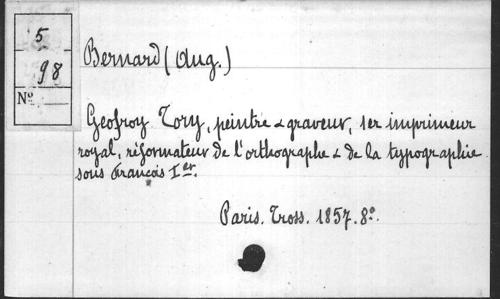 5
98
Nº
Bernard (Aug.)
Geofroy Tory, peintre & graveur, 1er imprimeur
royal, réformateur de l'orthographe & de la typographie
sous François Ier.
Paris. Tross. 1857. 8º.